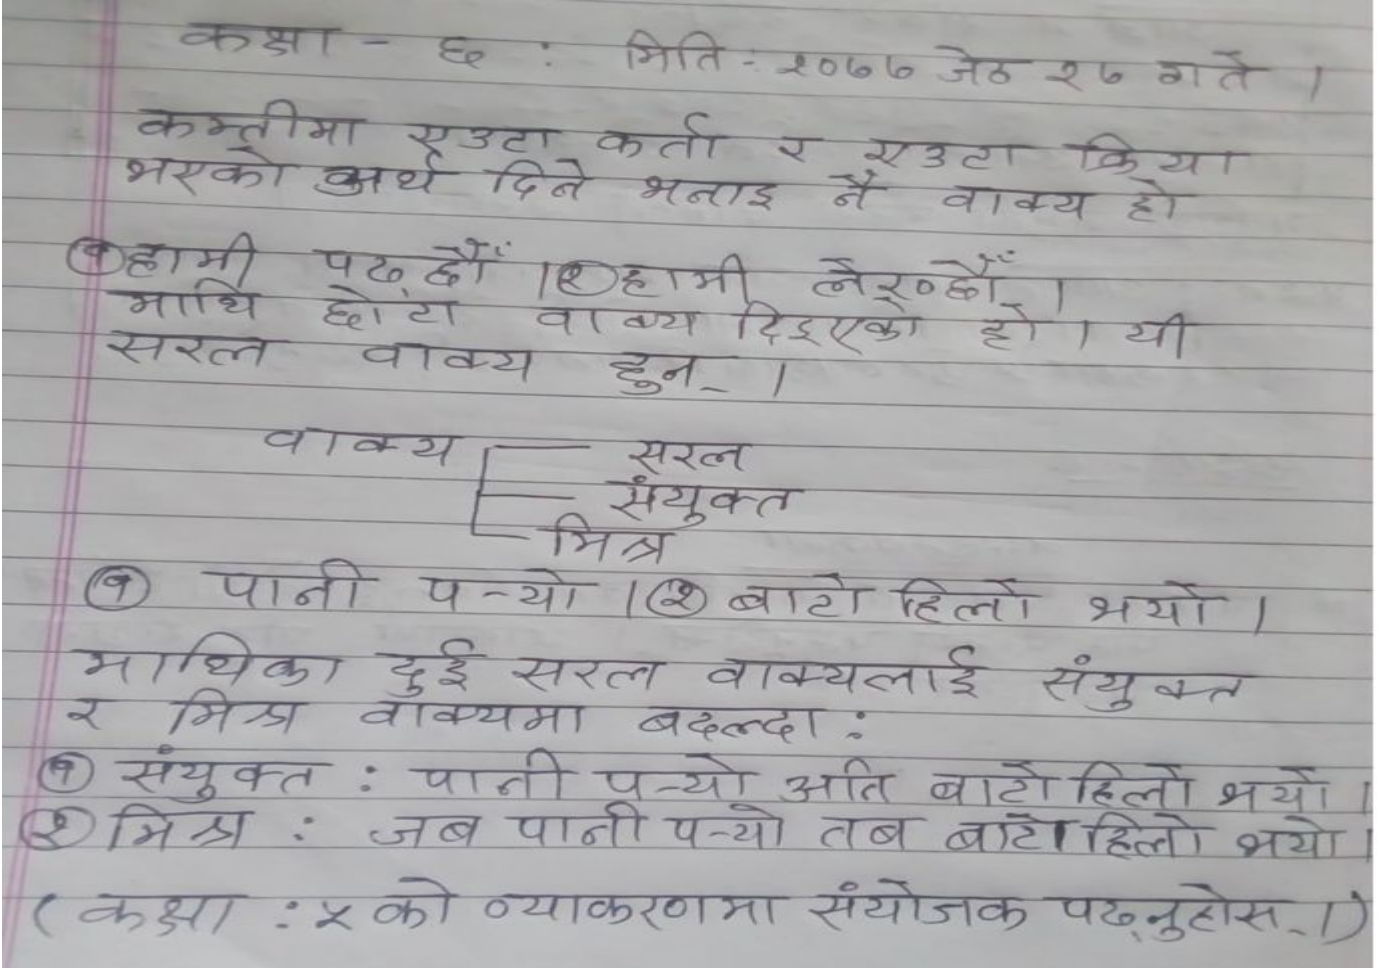 कक्षा - ६ : मिति - २०७७ जेठ २७ गते ।
कम्तीमा एउटा कर्ता र एउटा क्रिया
भएको अर्थ दिने भनाइ नै वाक्य हो
(१) हामी पढ्छौं । (२) हामी लेख्छौं ।
माथि छोटा वाक्य दिइएको हो । यी
सरल वाक्य हुन् ।
वाक्य सरल
संयुक्त
मिश्र
(१) पानी पर्‍यो । (२) बाटो हिलो भयो ।
माथिका दुई सरल वाक्यलाई संयुक्त
र मिश्र वाक्यमा बदल्दा :
(१) संयुक्त : पानी पर्‍यो अनि बाटो हिलो भयो ।
(२) मिश्र : जब पानी पर्‍यो तब बाटो हिलो भयो ।
( कक्षा : ५ को व्याकरणमा संयोजक पढ्नुहोस् । )